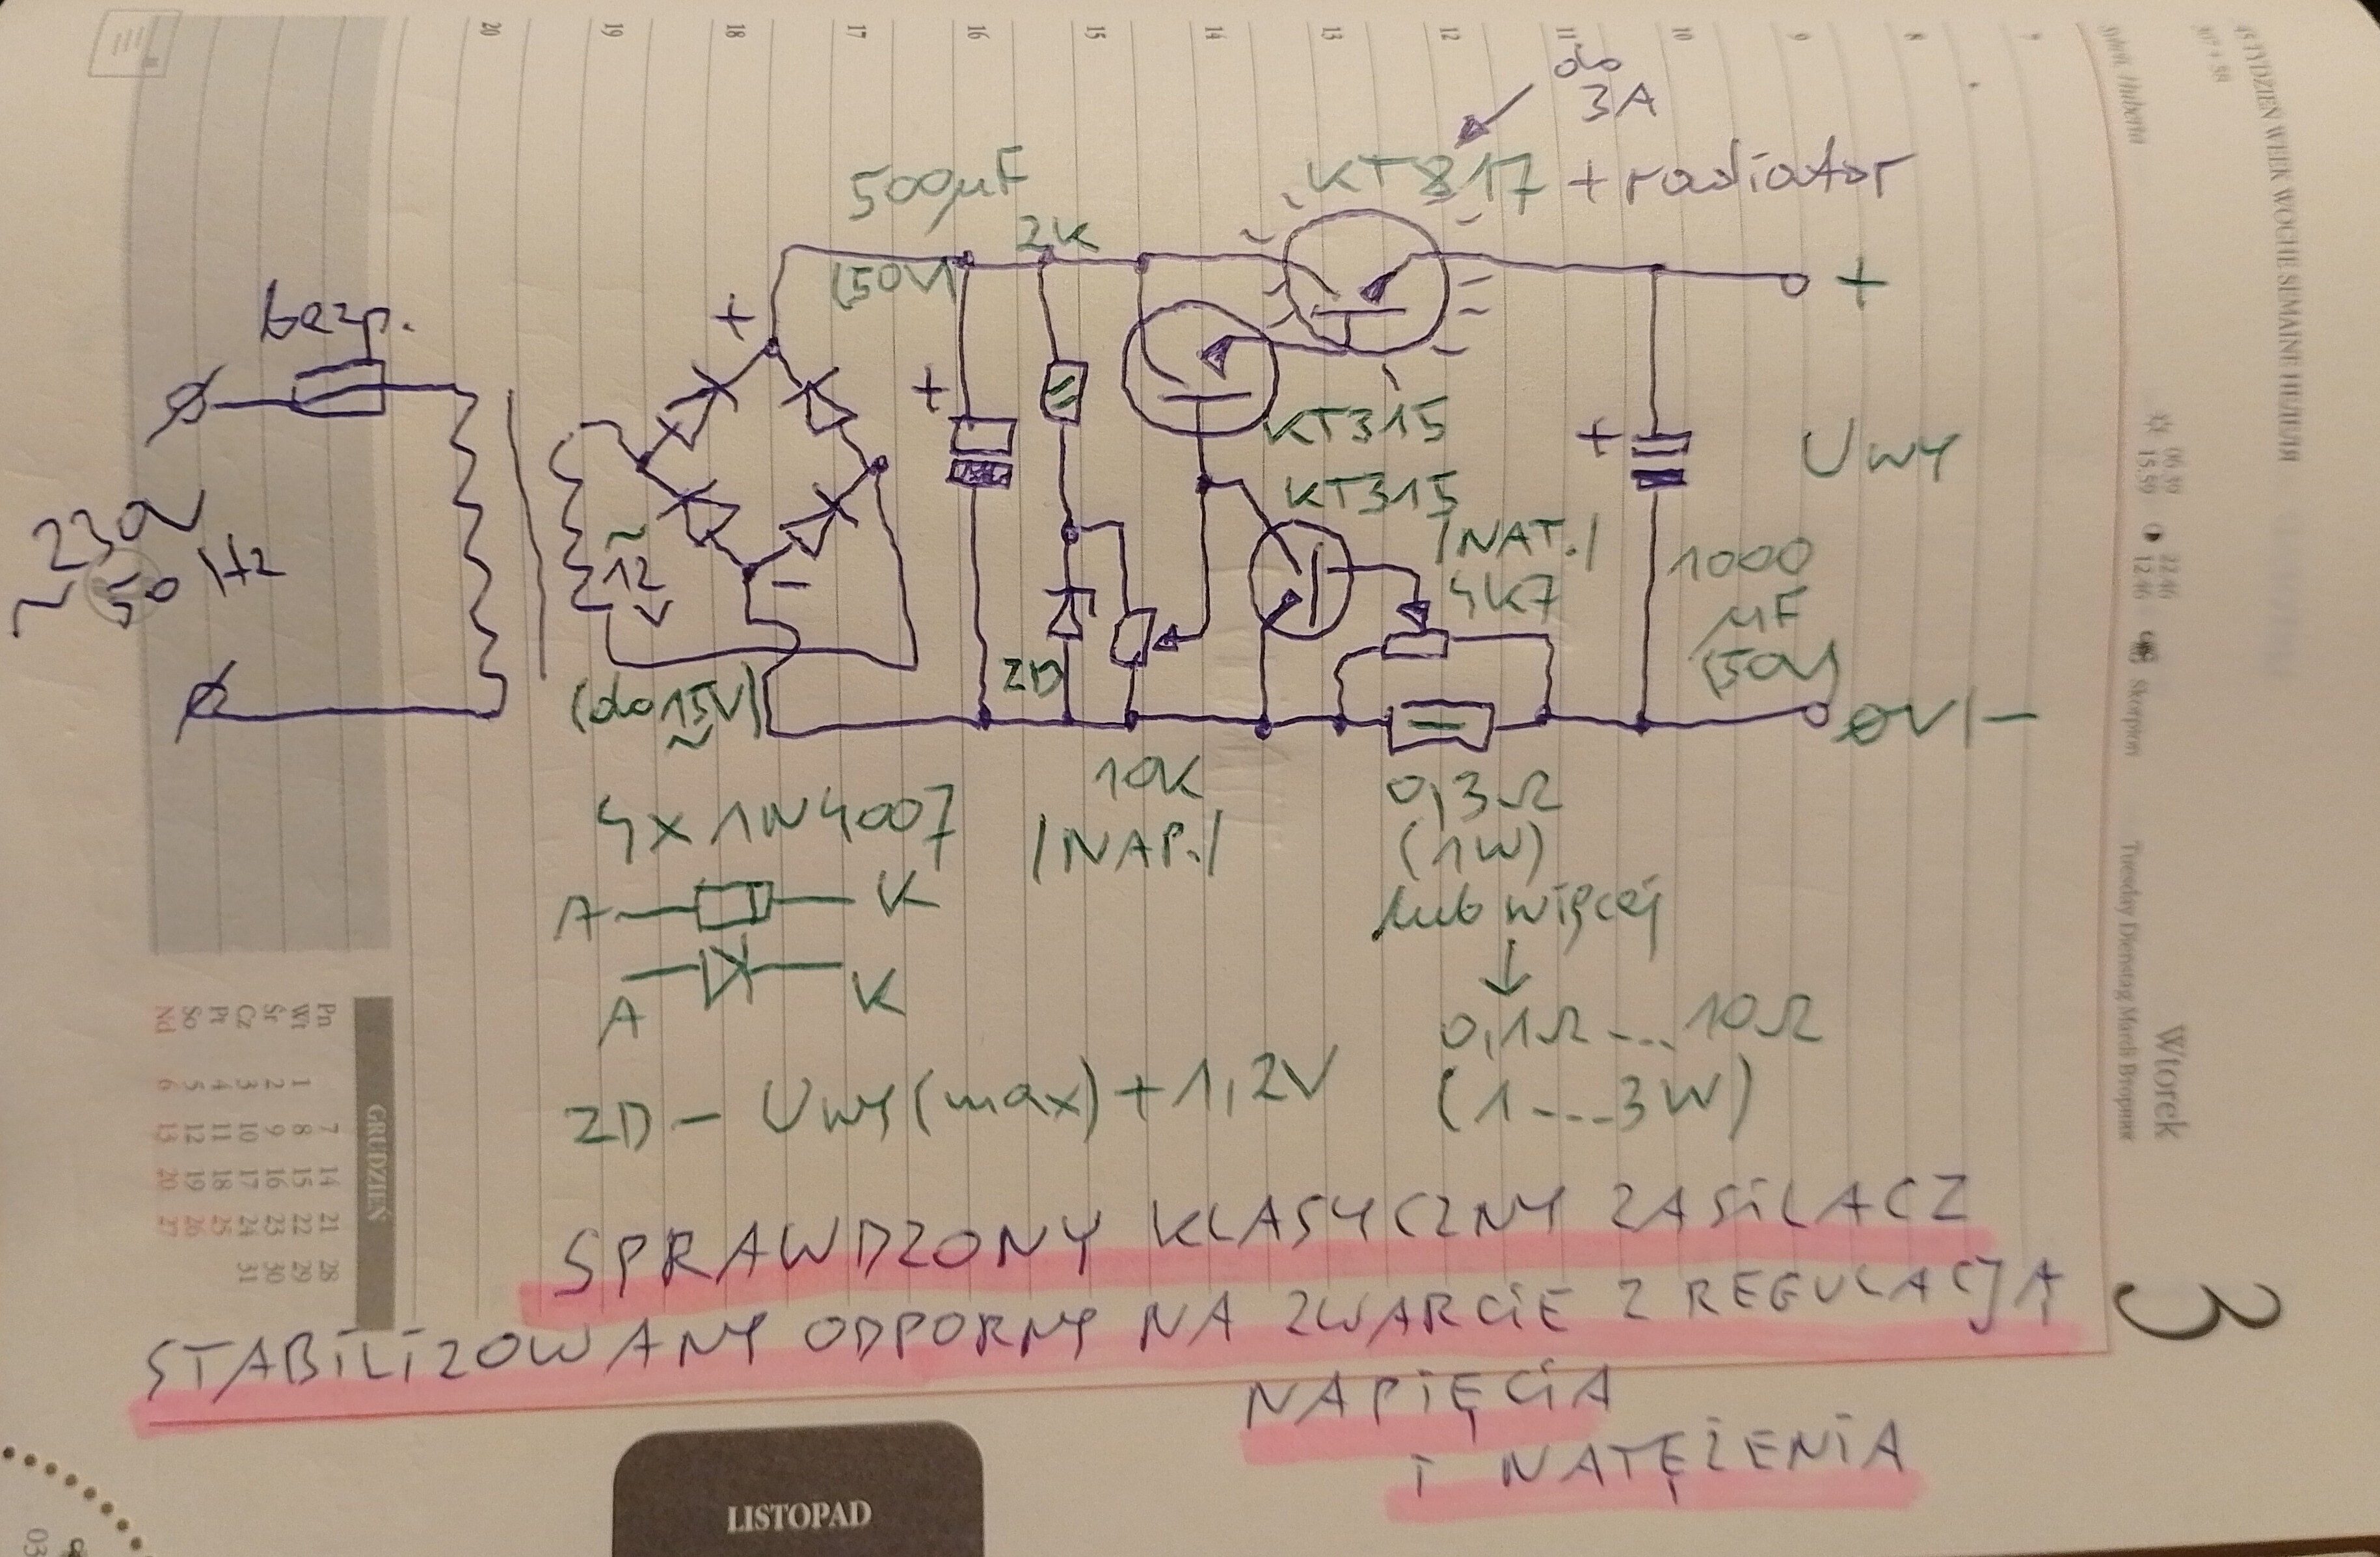 do
3A
KT817 + radiator
500µF
(50V)
2K
bezp.
+
+
+
+
KT315
KT315
Uwy
/NAT./
4K7
~230V
50 Hz
~
12
V
1000
µF
(50V)
ZD
(do 15V)
~
0V/-
10K
/NAP./
0,3Ω
(1W)
lub więcej
↓
0,1Ω ... 10Ω
(1...3W)
4x 1N4007
A K
A K
ZD - Uwy(max) + 1,2V
SPRAWDZONY KLASYCZNY ZASILACZ
STABILIZOWANY ODPORNY NA ZWARCIE Z REGULACJĄ
NAPIĘCIA
I NATĘŻENIA
LISTOPAD
3
Wtorek
Tuesday Dienstag Mardi Вторник
Skorpion
45 TYDZIEŃ WEEK WOCHE SEMAINE НЕДЕЛЯ
06.39
15.59
22.46
12.46
7
8
9
10
11
12
13
14
15
16
17
18
19
20
GRUDZIEŃ
Pn 7 14 21 28
Wt 1 8 15 22 29
Śr 2 9 16 23 30
Cz 3 10 17 24 31
Pt 4 11 18 25
So 5 12 19 26
Nd 6 13 20 27
03